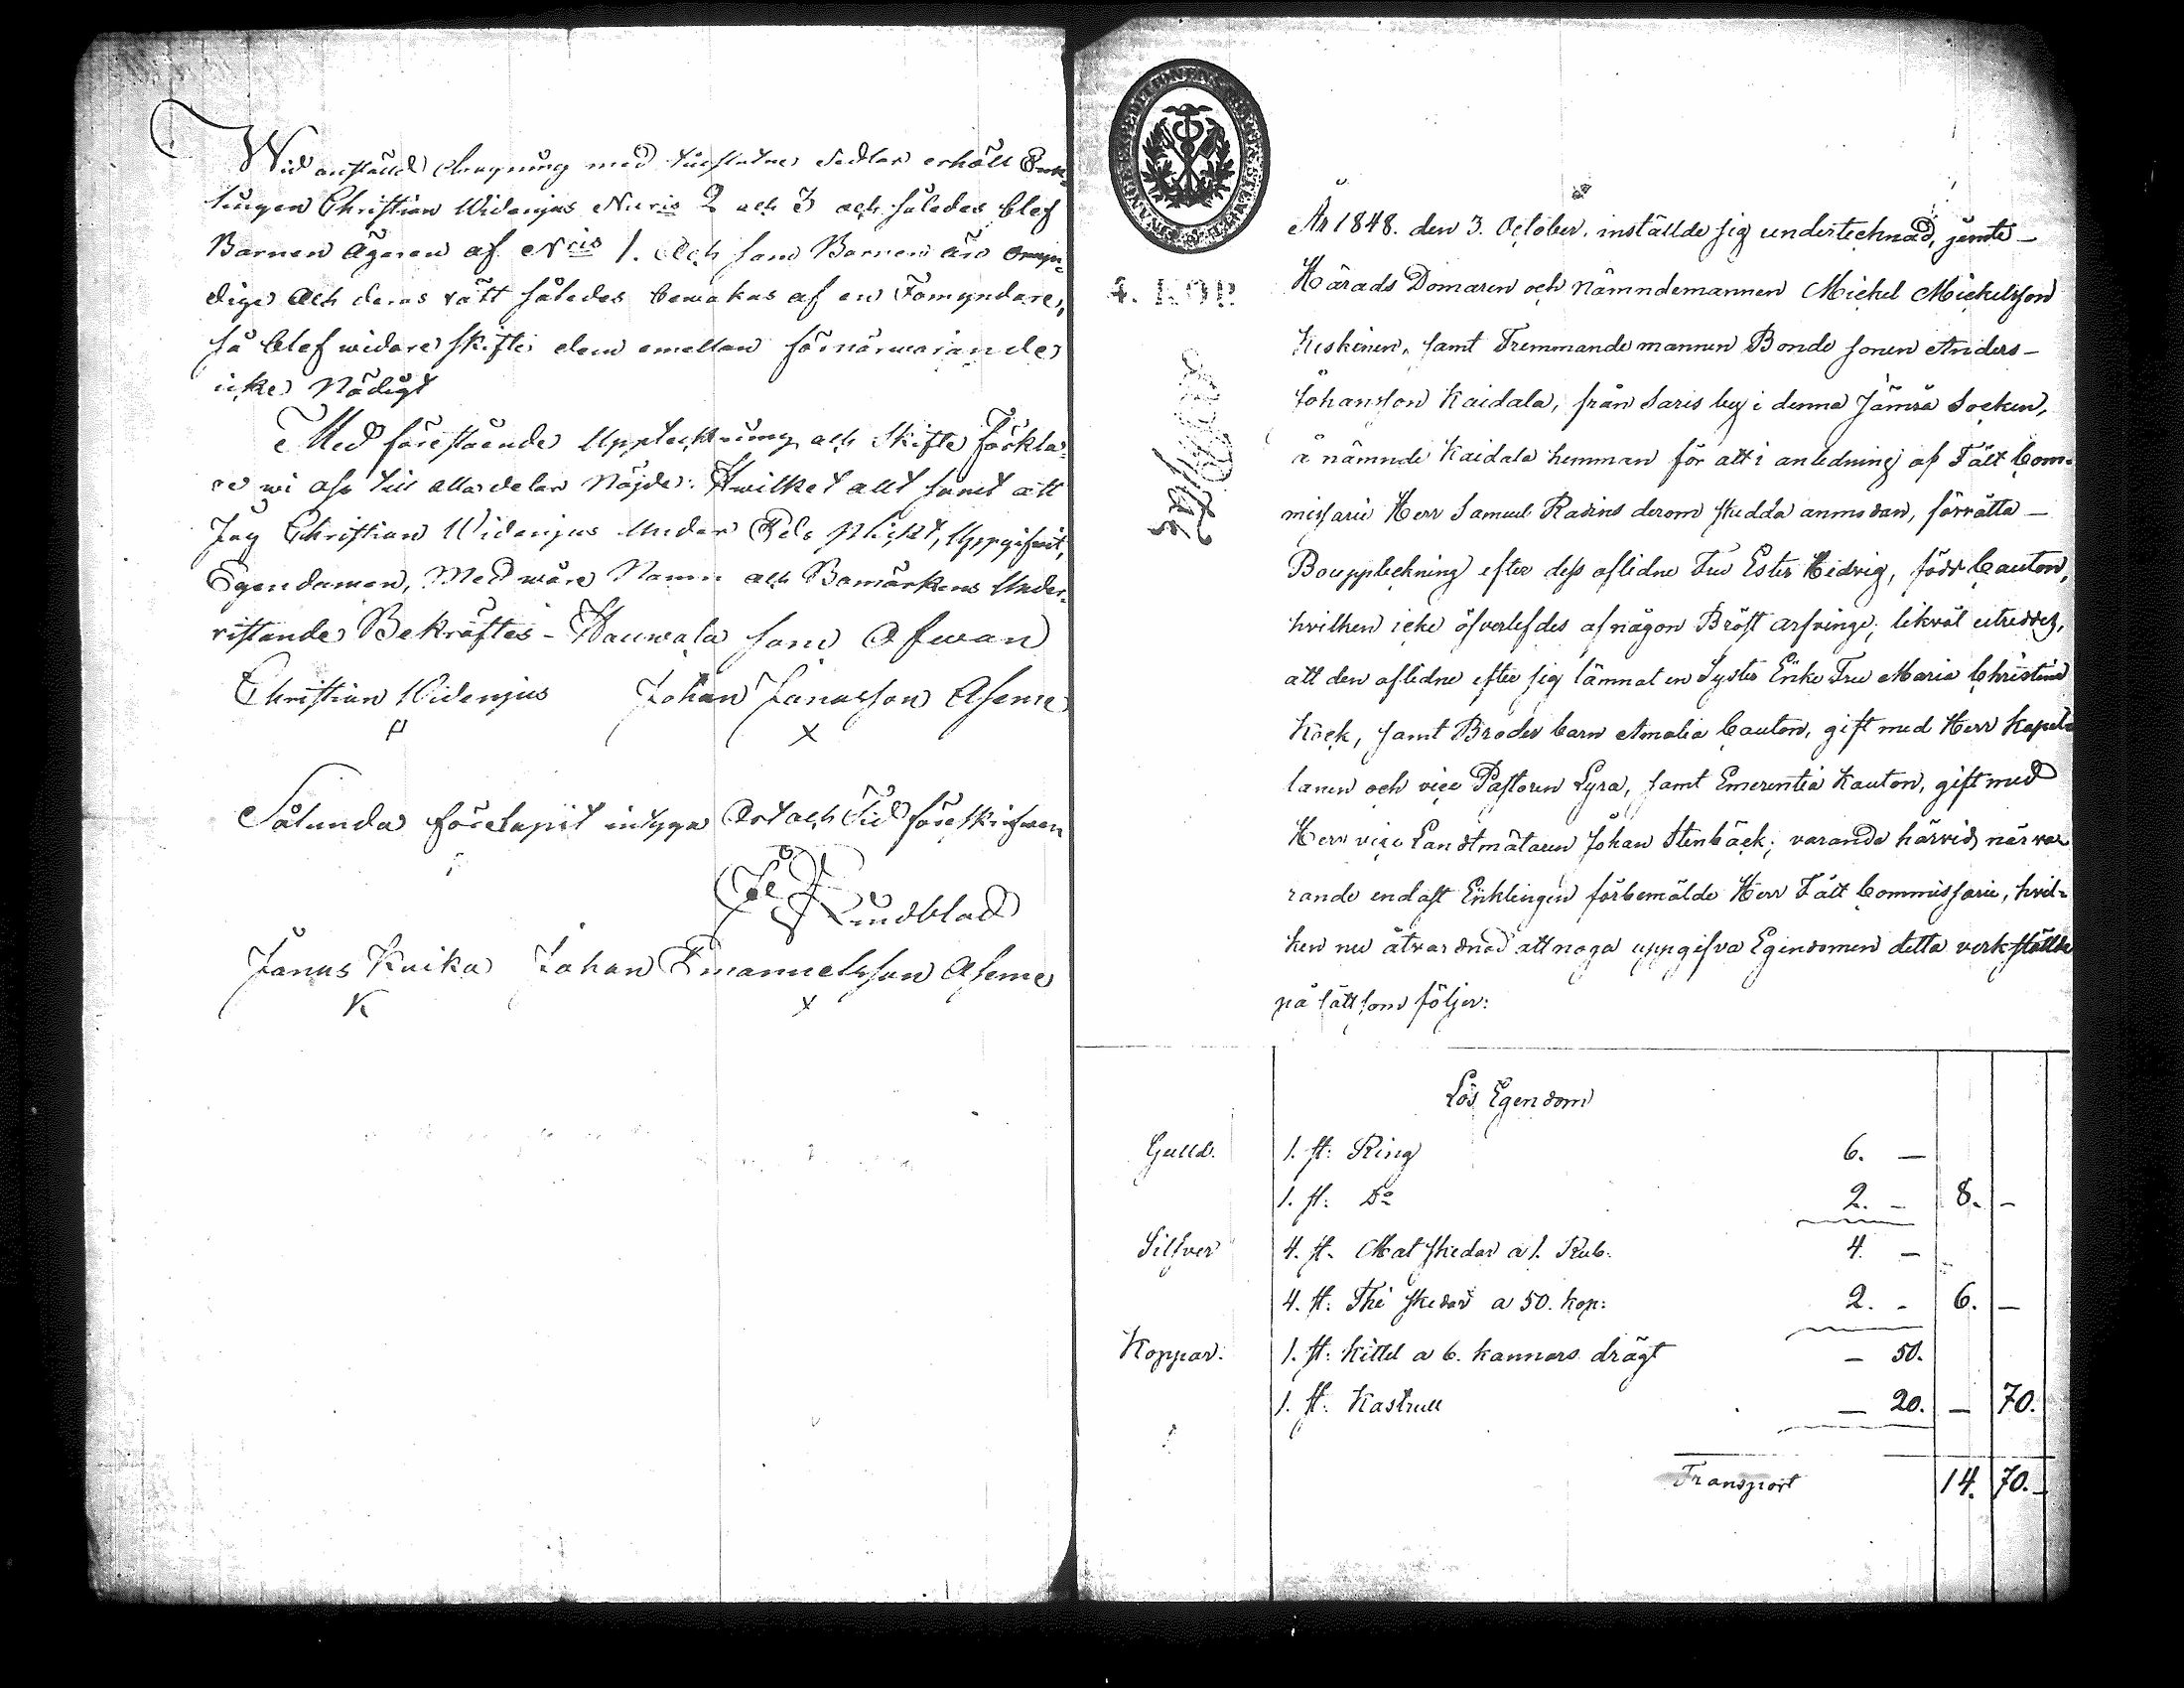 Wid anstäld dragning med tilslutne Sedlar erhöll Enk-
lingen Christian Widenjus Nuris 2 och 3 och således blef
Barnen Ägaren af Nris 1. Och som Barnen äro omyn-
dige och deras rätt således bewakas af en Fömyndare,
så blef widare skifte dem emellan förnärwarande
icke Nödigt
Med förestående Uppteckning och Skifte förkla-
re wi oss till alla delar Nöjde: Hwilket alt samt att
Jag Christian Widenjus Under Eds plickt, Uppgifvit,
Egendomen, Med wåre Namn och Bomärkens Under-
ristande Bekräftes - Hauwala som Ofwan
Christian Widenjus Johan Janusson Aseme
Sålunda förelupit intyga Ort och Tid föreskrifwen
Lindblad
Janus Knika Johan Emanuelsson Aseme
K X
4. KOP.
År 1848. den 3. October. inställde sig undertecknad, jemte
Härads Domaren och Nämndemannen Michel Michelsson
Kiskinen, samt Fremmande mannen Bonde sonen Anders
Johansson Kaidala, från Saris by i denna Jämsä Socken,
å nämnde Kaidala hemman för att i anledning af Fält Com-
missarie Herr Samuel Rasins derom skedda anmodan, förrätta
Bouppteckning efter dess aflidne Fru Ester Hedvig, född Cauton,
hvilken icke öfverlefdes af någon Bröst arfvinge; likväl utreddes,
att den aflidne efter sig lämnat en Syster Enke Fru Maria Christina
Kock, samt Broders barn Amalia Cauton, gift med Herr Kapel-
lanen och vice Pastoren Lyra, samt Emerentia Kauton, gift med
Herr vice Landtmätaren Johan Stenbäck; varande härvid närva-
rande endast Enklingen förbemälde Herr Fält Commissarie, hvil-
ken nu åtvarnad att noga uppgifva Egendomen detta verkställde
på sätt som följer:
Lös Egendom
Guld. 1. st: Ring 6. —
1. st. Do 2. - 8. -
Silfver 4. st. Mat skedar a 1. Rub. 4. —
4. st: The skedar a 50. kop: 2. - 6. —
Koppar. 1. st: Kittel a 6. kannors drägt — 50.
1. st. Kastrull — 20. — 70.
Transport 14. 70.